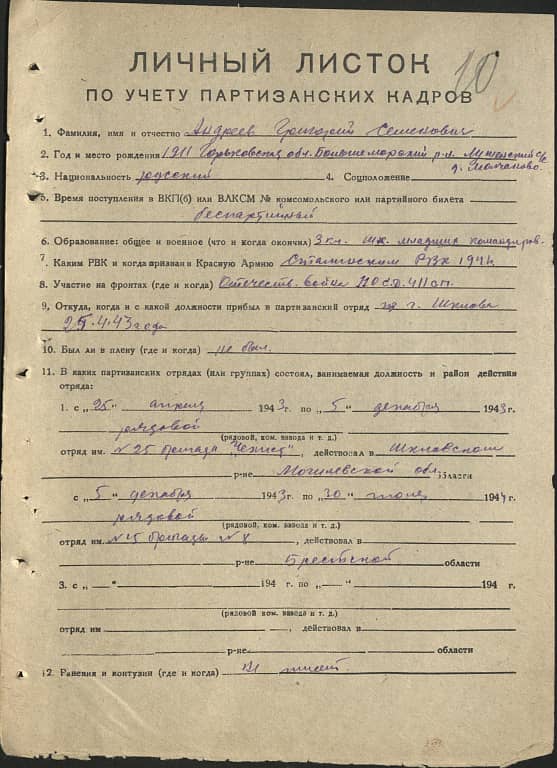 10
ЛИЧНЫЙ ЛИСТОК
ПО УЧЕТУ ПАРТИЗАНСКИХ КАДРОВ
1. Фамилия, имя и отчество Андреев Григорий Семенович
2. Год и место рождения 1911 Горьковская обл. Большеморский р-н. с/с
д. Молчаново
3. Национальность русский 4. Соцположение
5. Время поступления в ВКП(б) или ВЛКСМ № комсомольского или партийного билета
беспартийный
6. Образование: общее и военное (что и когда окончил) 3 кл. шк. младших командиров.
7. Каким РВК и когда призван в Красную Армию Сталинским РВК 1941.
8. Участие на фронтах (где и когда) Отечеств. война 110 с.д. 411 сп.
9. Откуда, когда и с какой должности прибыл в партизанский отряд г. Шклова
25.4.43 года
10. Был ли в плену (где и когда) не был.
11. В каких партизанских отрядах (или группах) состоял, занимаемая должность и район действия
отряда:
1. с „25“ апреля 1943 г. по „5“ декабря 1943 г.
рядовой
(рядовой, ком. взвода и т. д.)
отряд им. № 25 бригады "Чекист", действовал в Шкловском
р-не Могилевской обл. области
с „5“ декабря 1943 г. по „30“ июня 1944 г.
рядовой
(рядовой, ком. взвода и т. д.)
отряд им. №15 бригады № 8, действовал в
р-не Брестской области
3. с „ — “ 194 г. по „ — “ 194 г.
(рядовой ком. взвода и т. д.)
отряд им — , действовал в
р-не области
12. Ранения и контузии (где и когда) Не имеет.